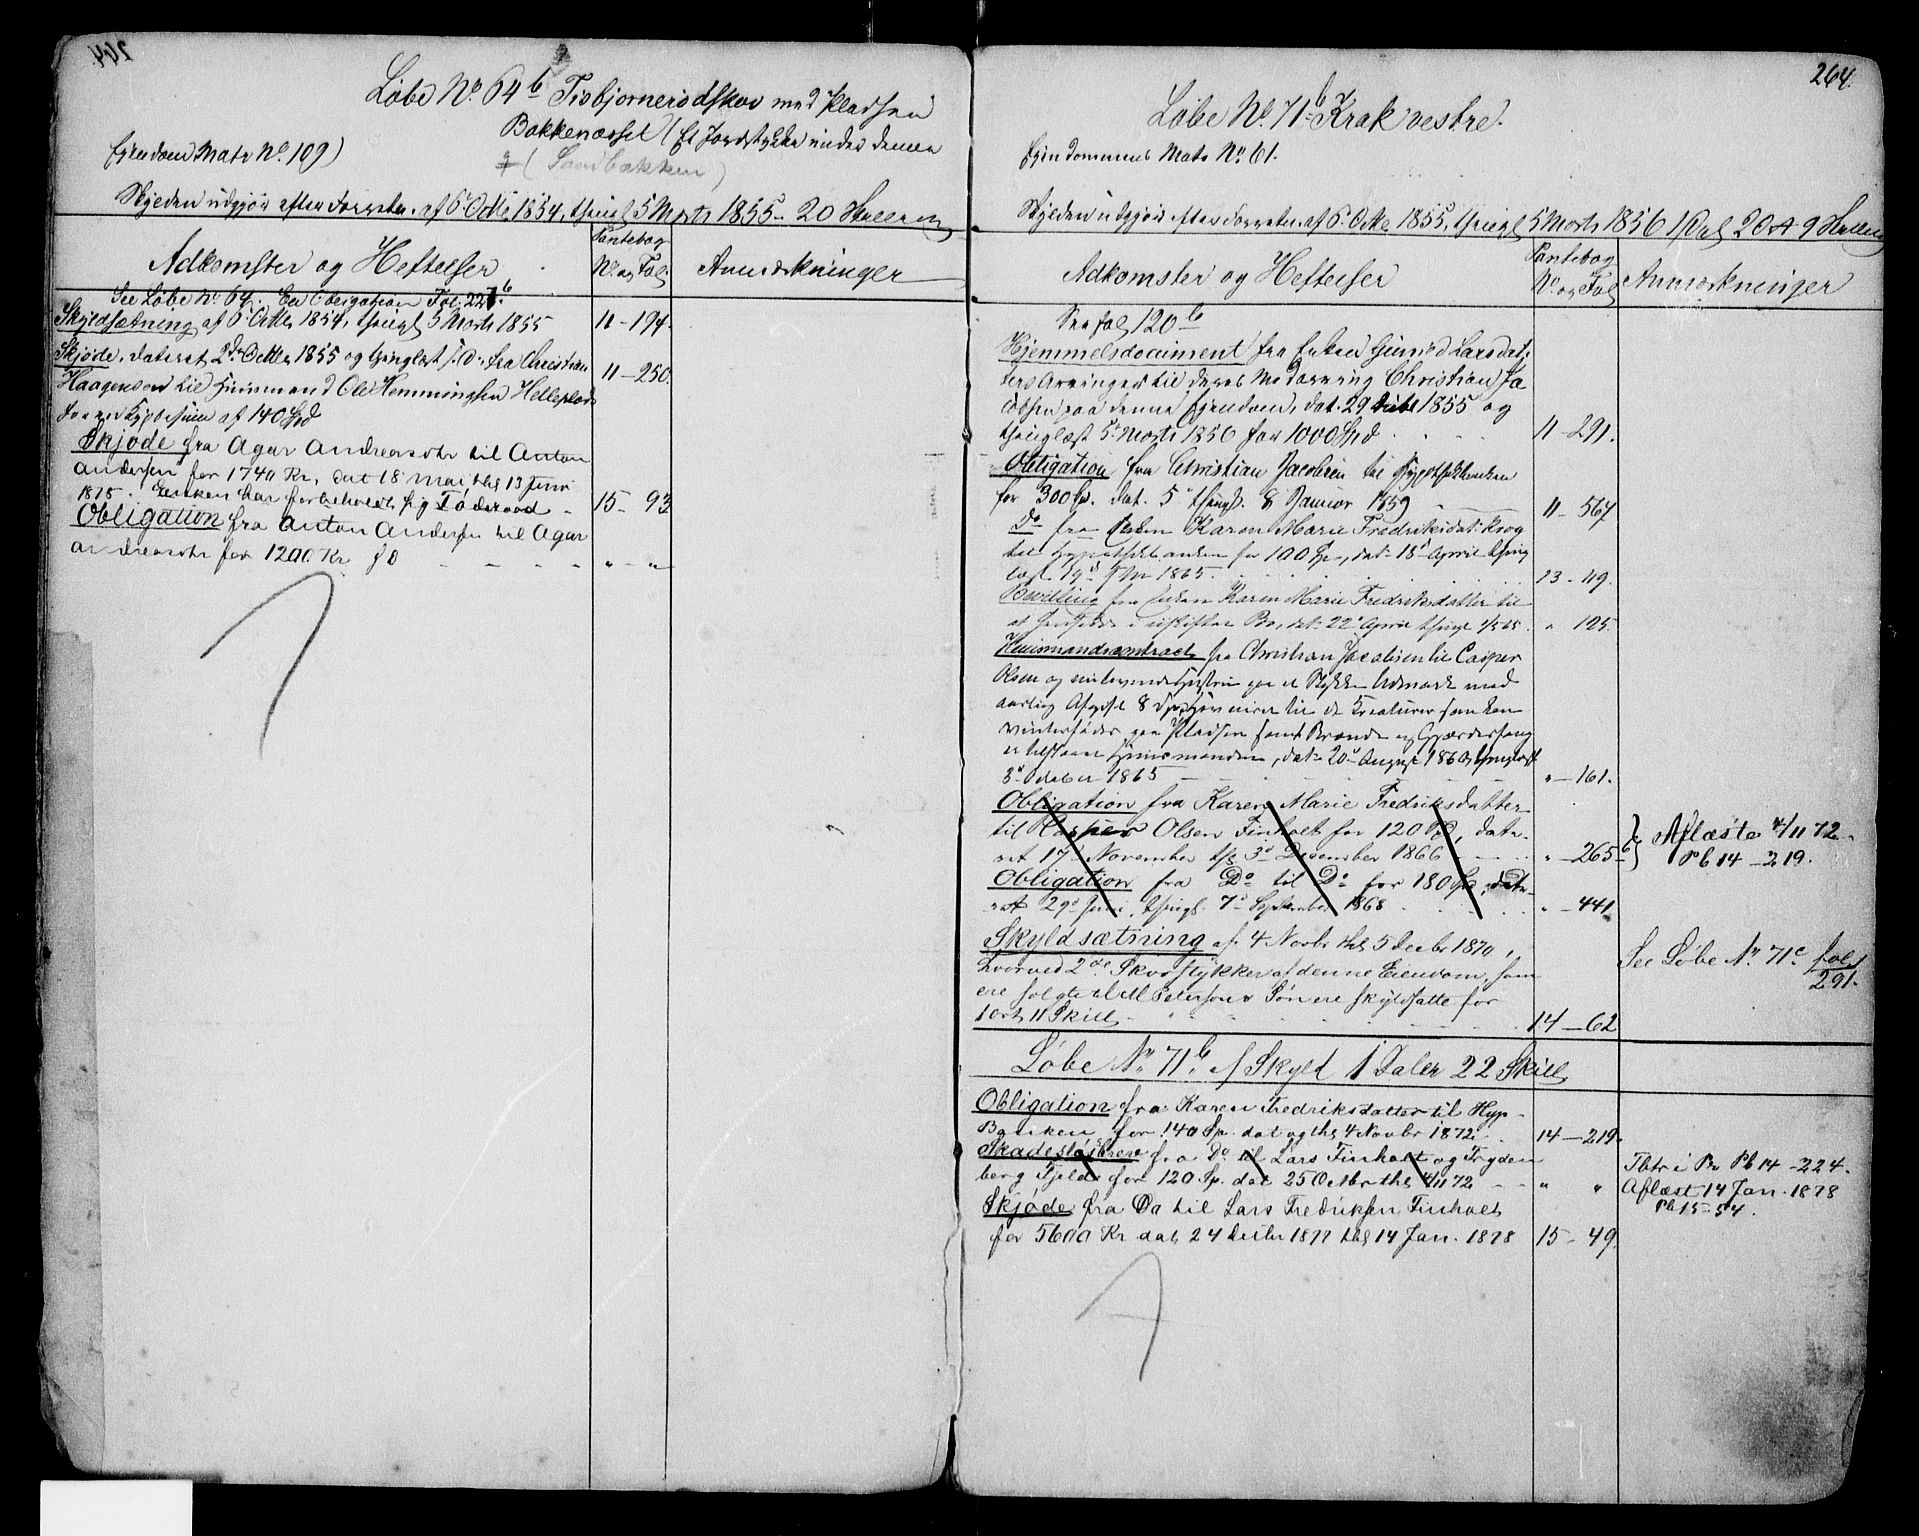 Løbe No. 64b Tisbjørnerødskov med Pladsen
Bakkenæsset (Et Jordstykke under denne
Ejendom Matr No. 109)
(Sandbakken)
Skylden udgjør efter Forretn. af 6 Octbr 1854, thingl. 5 Marts 1855 - 20 Skilling
Adkomster og Heftelser
Pantebog
No. og Fol.
Anmærkninger
See Løbe No 64. En Obligation Fol. 227b
Skyldsætning af 6 Octbr 1854, thingl 5 Marts 1855 11-194.
Skjøde, dateret 2den Octbr 1855 og thinglæst s. D. fra Christian
Haagensen til Huusmand Ole Hemmingsen Helleplads 11-250.
for en Kjøbesum af 140 Spd
Skjøde fra Agar Andreasdtr til Anton
Andersen for 1740 Kr, dat 18 Mai thl 13 Juni
1878. Enken har forbeholdt sig Føderaad - 15-93
Obligation fra Anton Andersen til Agar
Andreasdtr for 1200 Kr. s D - - - - " - "
264.
Løbe No. 71b Krak vestre.
Ejendommens Matr No. 61.
Skylden udgjør efter Forretn. af 6 Octbr 1855, thingl 5 Marts 1856 1 Dal 20 ß 9 Skilling
Adkomster og Heftelser
Pantebog
No. og Fol.
Anmærkninger
See fol 120b
Hjemmelsdocument fra Enken Gunild Larsdat-
ters Arvinger til deres Medarving Christian Ja-
cobsen paa denne Ejendom, dat. 29 1855 og
thinglæst 5 Marts 1856 for 1000 Spd 11-291.
Obligation fra Christian Jacobsen til Hypothekbanken
for 300 Sp. dat. 5 thingl. 8 Januar 1859 11-567
Do fra Enken Karen Marie Fredriksdat: Krog
til Hypothekbanken for 100 Sp, dat. 18d April thing
læst 19d 1865. 13-49.
Bevilling fra Enken Karen Marie Fredriksdatter til
at hensidde i uskiftet Bo, dat: 22d April thingl 1/5 65. " 125.
Huusmandscontract fra Christian Jacobsen til Casper
Olsen og paa et Stykke Udmark med
aarlig Afgift 8 til de Kreaturer som han
vinterføder paa Pladsen samt Brænde og Gjærdefang
er tilstaaet Huusmanden, dat: 20d August 1860, thinglæst
3d 1865 " - 161.
Obligation fra Karen Marie Fredriksdatter
til Casper Olsen Finholt for 120 Sp, date-
ret 17d November thl 3d December 1866 " - 265b
} Aflæste 4/11 72.
Pb 14 - 219.
Obligation fra Do til Do for 180 Sp, date-
ret 29d Juni, thingl. 7d September 1868 " - 441
Skyldsætning af 4 Novbr thl 5 Decbr 1870,
hvorved 2de Skovstykker af denne Eiendom, som
ere solgte til M Peterson & Søn ere skyldsatte for
1 ort 11 Skill. 14-62
See Løbe No 71c fol
291.
Løbe No 71b af Skyld 1 Daler 22 Skill
Obligation fra Karen Fredriksdatter til Hyp-
Banken for 140 Sp. dat og thl 4 Novbr 1872 - 14-219.
Skadesløsbrev fra Do til Lars Finholt og Tryden
berg Fjeld for 120 Sp. dat 25 Octbr thl 4/11 72 - - " "
Thtr i Pr Pb 14 - 224.
Aflæst 14 Jan. 1878
Pb 15-54.
Skjøde fra Do til Lars Fredriksen Finholt
for 5600 Kr dat, 24 Decbr 1877 thl 14 Jan. 1878 15-49.